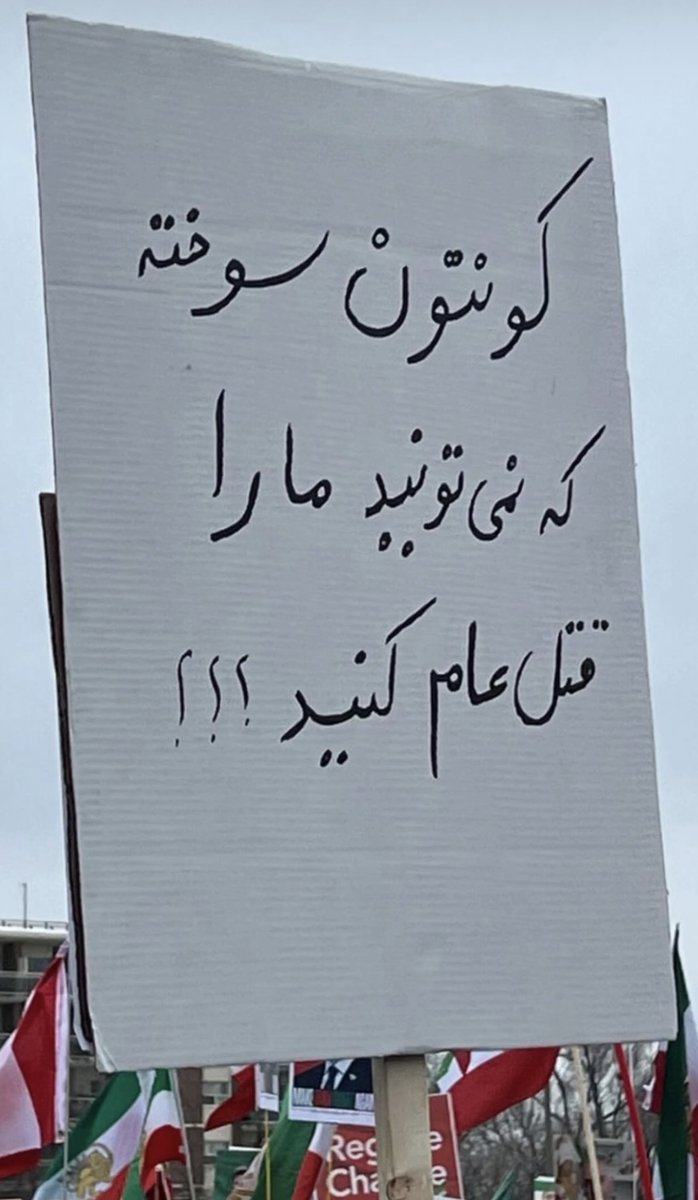 کونتون سوخته
که نمی تونید ما را
قتل عام کنید !!!
Regime
Change